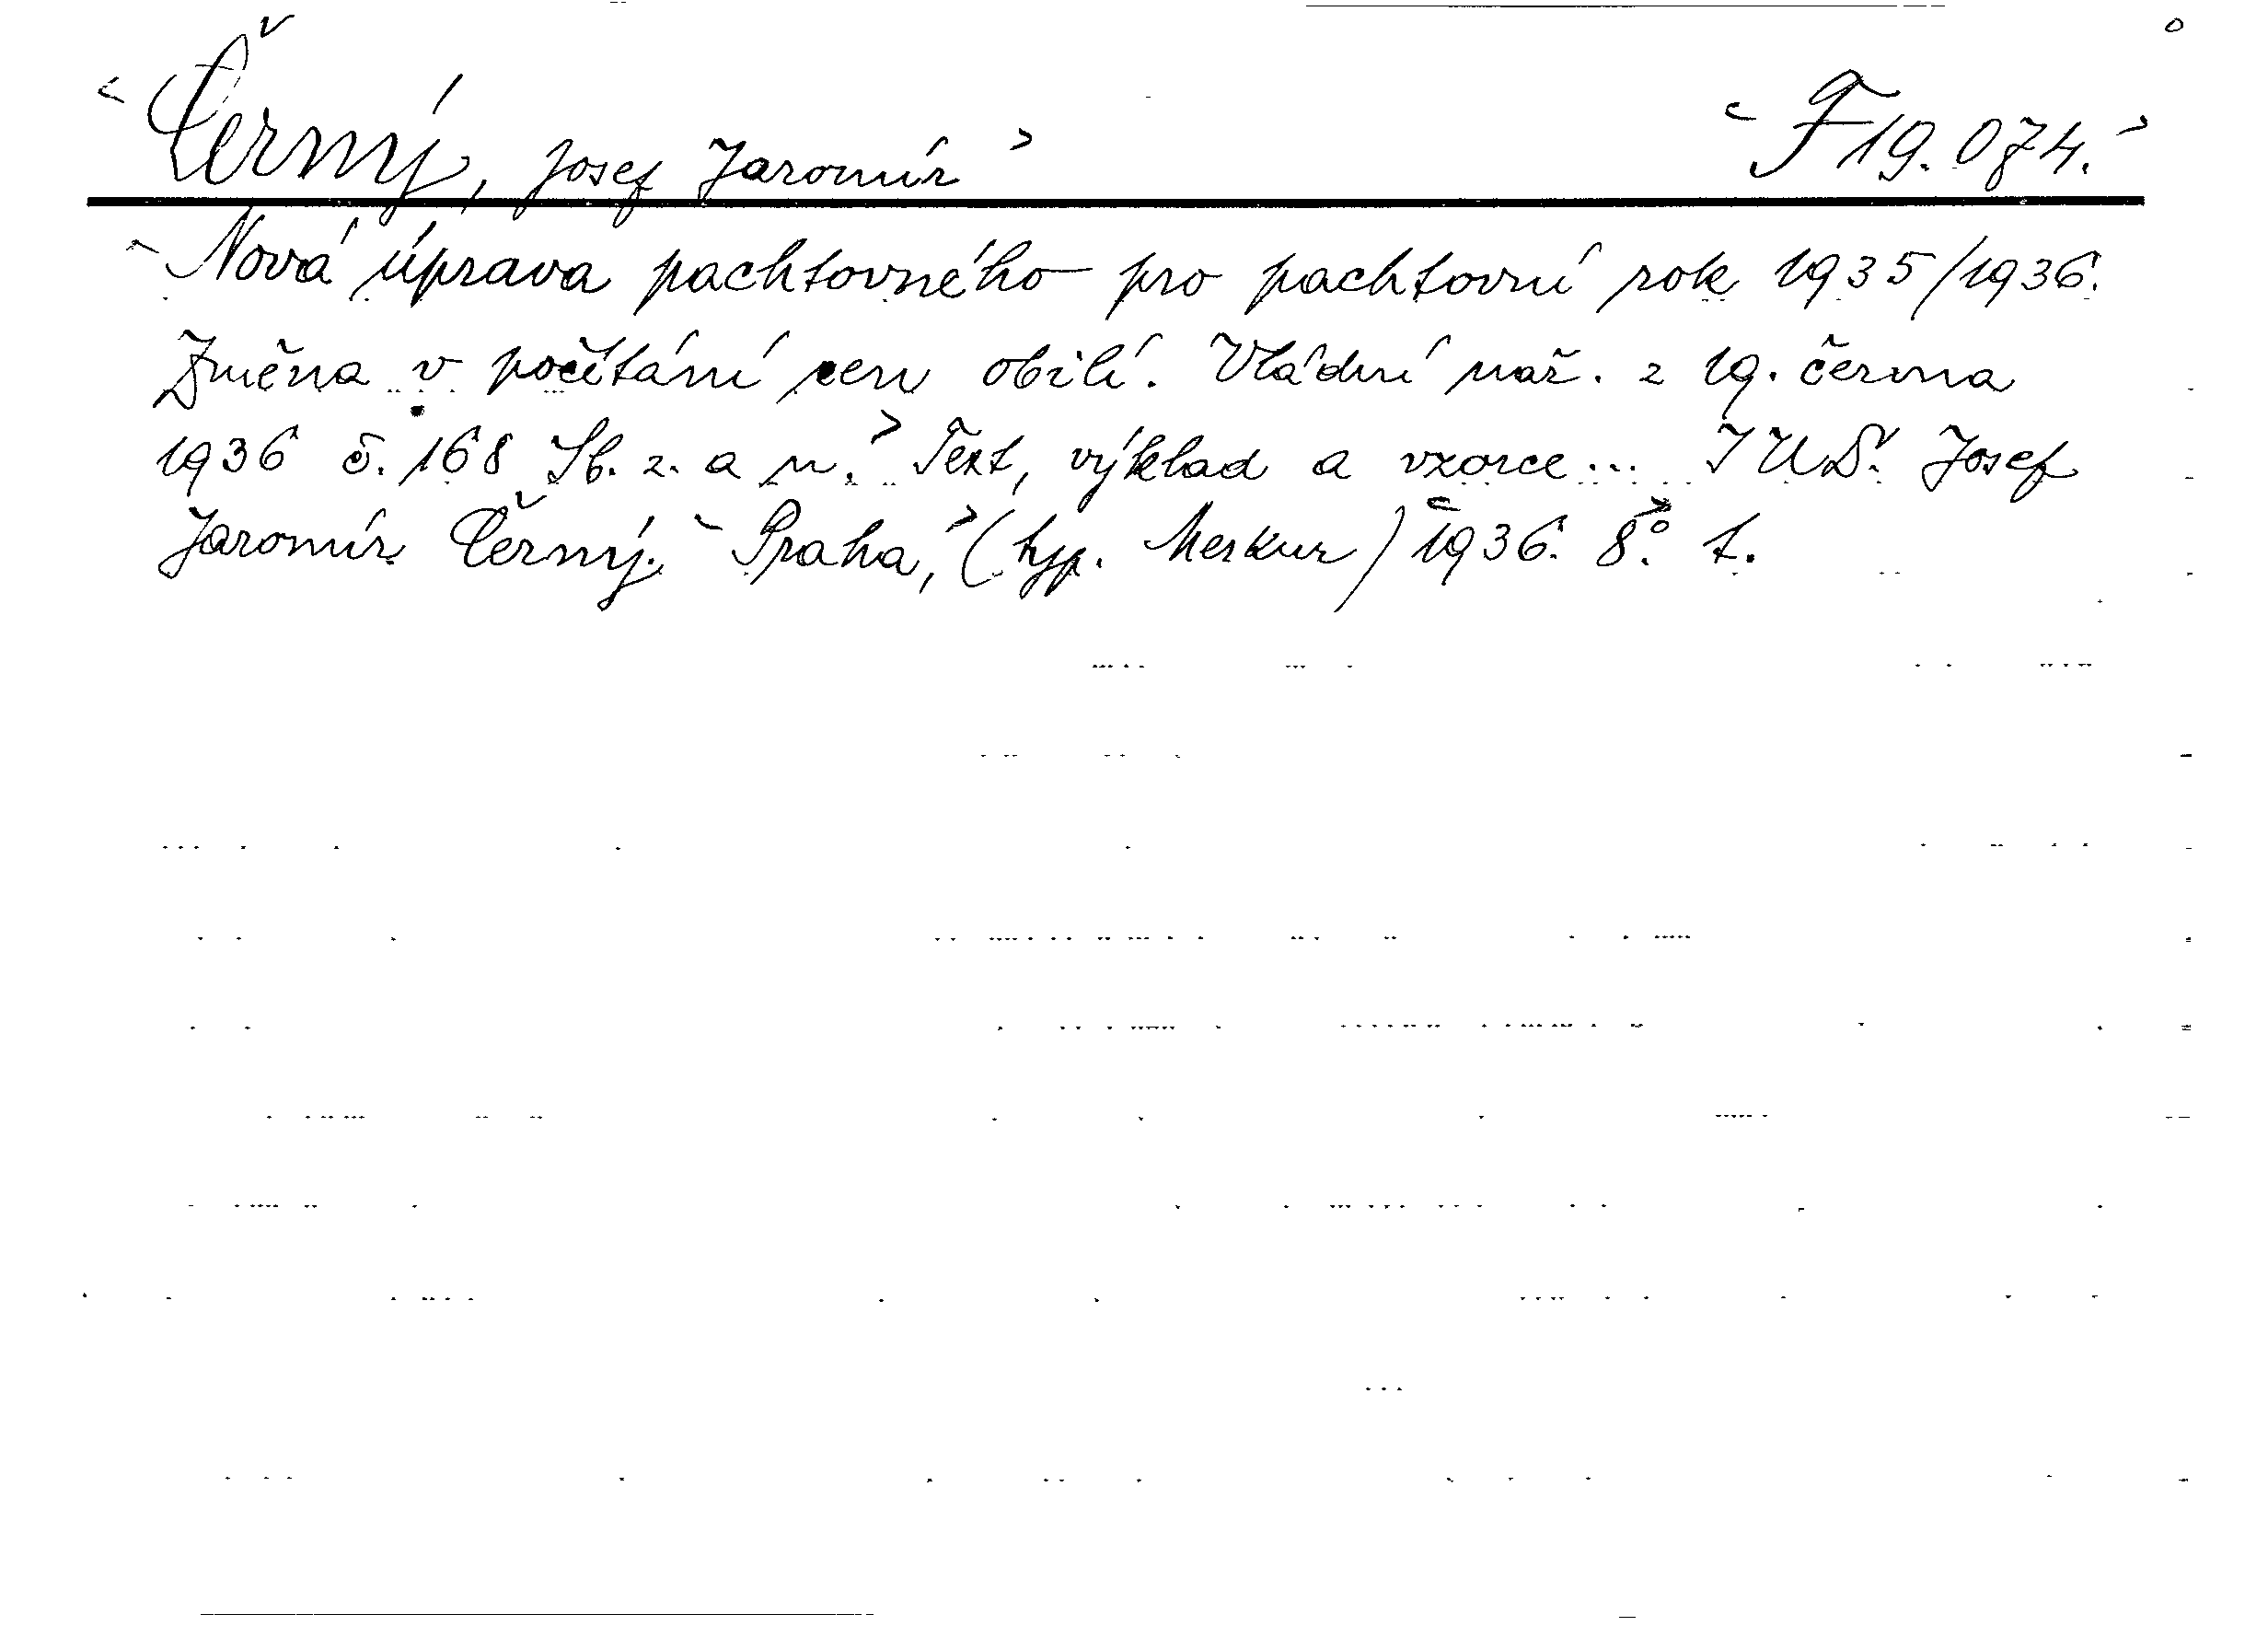 Černý, Josef Jaromír F 19.074.
Nová úprava pachtovného pro pachtovní rok 1935/1936.
Změna v počítání cen obilí. Vládní nař. z 19. června
1936 č. 168 Sb. z. a n. Text, výklad a vzorce... JUDr. Josef
Jaromír Černý. Praha, (typ. Merkur) 1936. 8°. t.